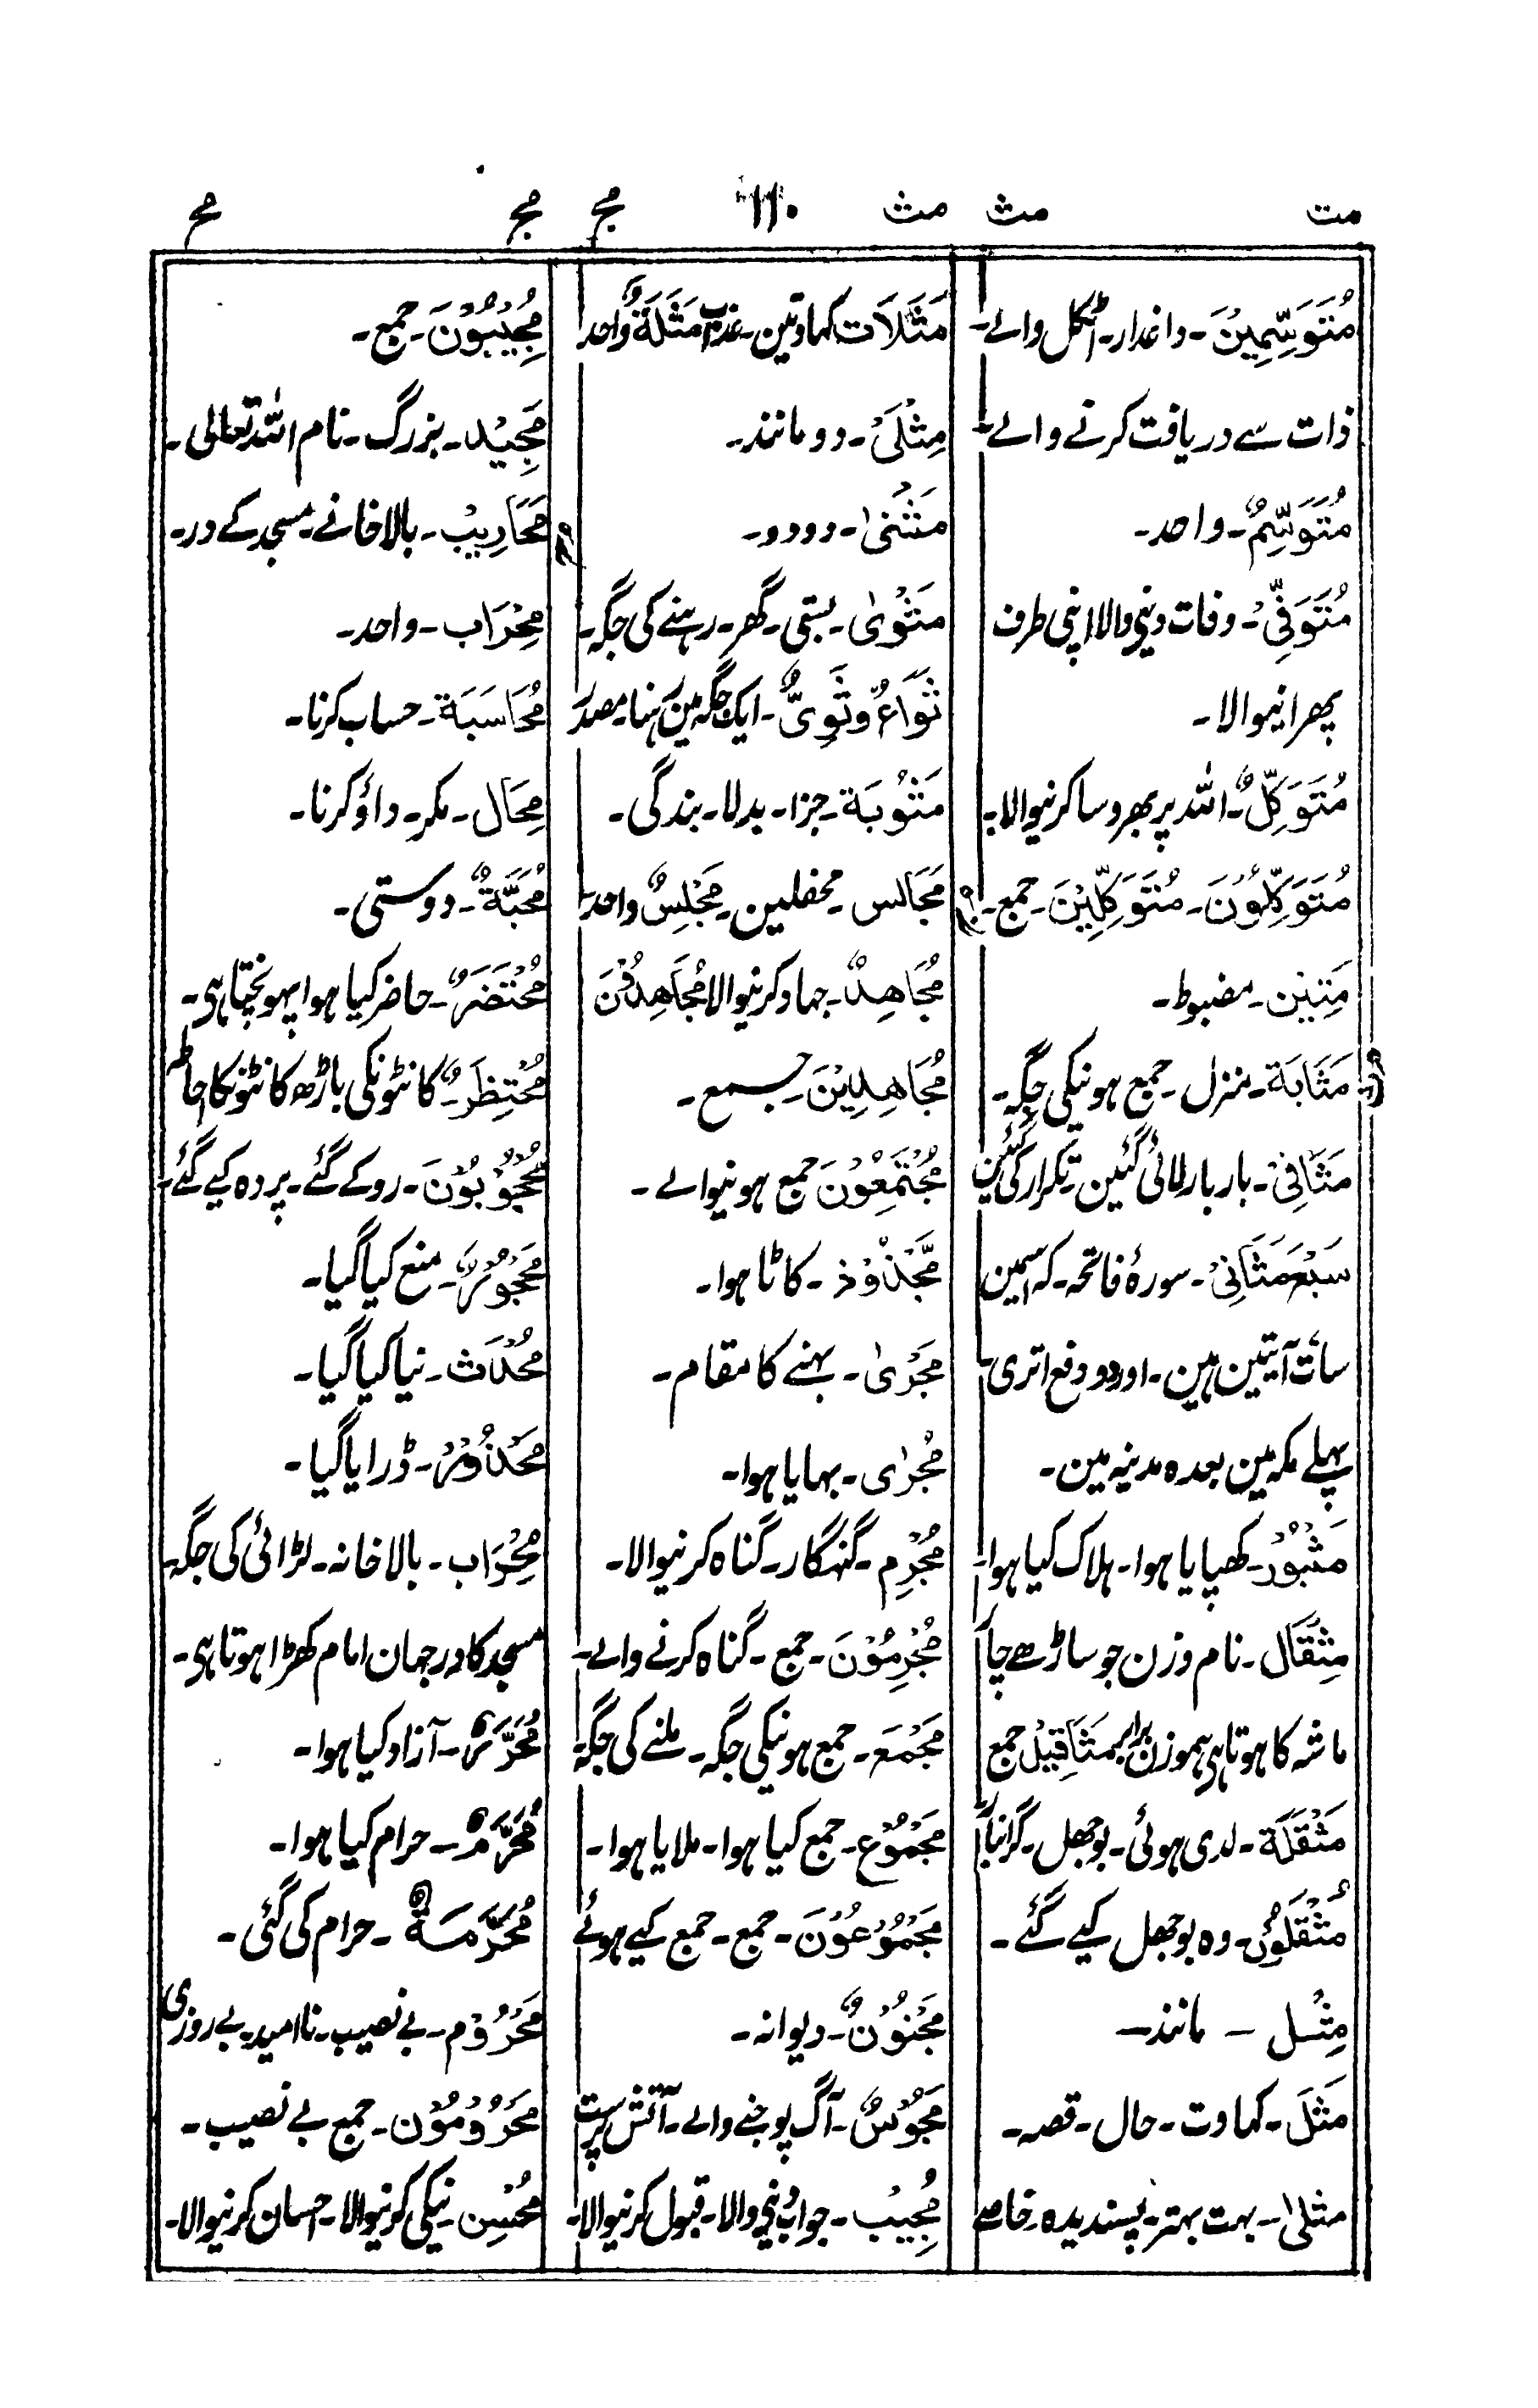 مت مث مث ۱۱۰ مج مج مح
مُتَوَسِّمِيْنَ۔ داغدار۔ اٹکل والے۔
ذات سے دریافت کرنے والے۔
مُتَوَسِّمٌ۔ واحد۔
مُتَوَفِّیْ۔ وفات دینی والا اپنی طرف
پھرانیوالا۔
مُتَوَكِّلٌ۔ اللہ پر بھروسا کرنیوالا۔
مُتَوَكِّلُوْنَ۔ مُتَوَكِّلِيْنَ۔ جمع۔
مَتِيْن۔ مضبوط۔
مَثَابَة۔ منزل۔ جمع ہونیکی جگہ۔
مَثَانِیْ۔ بار بار لمائی گئین۔ تکرار کی گئین
سَبْعَ مَثَانِیْ۔ سورۂ فاتحہ۔ کہ اسمین
سات آیتین ہین۔ اور دو دفع اتری
پہلے مکہ مین بعدہ مدنیہ مین۔
مَثْبُوْر۔ کھپایا ہوا۔ ہلاک کیا ہوا۔
مِثْقَال۔ نام وزن جو ساڑھے چار
ماشہ کا ہوتا ہی ہموزن برابر مَثَاقِيْل جمع
مَثْقَلَة۔ لدی ہوئی۔ بوجھل۔ گرانبار
مُثْقَلُوْن۔ وہ بوجھل کیے گئے۔
مِثْل۔ مانند۔
مَثَلَ۔ کہاوت۔ حال۔ قصہ۔
مثلیٰ۔ بہت بہتر۔ پسندیدہ۔ خاصے
مَثُلَات کہاوتین۔ عذاب مَثُلَةٌ واحد
مِثْلَیْ۔ دو مانند۔
مَثْنیٰ۔ دودو۔
مَثْویٰ۔ بستی۔ گھر۔ رہنے کی جگہ۔
ثَوَاءٌ وثَوِیٌّ۔ ایک جگہ مین رہنا۔ مصدر
مَثُوْبَة۔ جزا۔ بدلا۔ بندگی۔
مَجَالس۔ محفلین۔ مَجْلِسٌ واحد۔
مُجَاهِدٌ۔ جہاد کرنیوالا مُجَاهِدُوْنَ
مُجَاهِدِيْنَ۔ جمع۔
مُجْتَمِعُوْنَ جمع ہونیوالے۔
مَجْذُوْذ۔ کاٹا ہوا۔
مَجْریٰ۔ بہنے کا مقام۔
مُجْرٰی۔ بہایا ہوا۔
مُجْرِم۔ گنہگار۔ گناہ کرنیوالا۔
مُجْرِمُوْنَ۔ جمع۔ گناہ کرنے والے۔
مَجْمَعَ۔ جمع ہونیکی جگہ۔ ملنے کی جگہ
مَجْمُوْع۔ جمع کیا ہوا۔ ملایا ہوا۔
مَجْمُوْعُوْنَ۔ جمع۔ جمع کیے ہوئے
مَجْنُوْنٌ۔ دیوانہ۔
مَجُوْسٌ۔ آگ پوجنے والے۔ آتش پرست
مُجِيْب۔ جواب دینی والا۔ قبول کرنیوالا۔
مُجِيْبُوْنَ۔ جمع۔
مَجِيْد۔ بزرگ۔ نام اللہ تعالی۔
مَحَارِيْبْ۔ بالاخانے۔ مسجد کے در۔
مِحْرَاب۔ واحد۔
مُحَاسَبَة۔ حساب کرنا۔
مِحَال۔ مکر۔ داؤ کرنا۔
مُحَبَّةٌ۔ دوستی۔
مُحْتَضَرٌ۔ حاضر کیا ہوا پہونچتا ہی۔
مُحْتِظَرٌ۔ کانٹونکی باڑھ کانٹونکا احاطہ
مَحْجُوْبُوْنَ۔ روکے گئے۔ پردہ کیے گئے۔
مَحْجُوْرٌ۔ منع کیا گیا۔
مُحْدَث۔ نیا کیا گیا۔
مَحْذُوْرٌ۔ ڈرایا گیا۔
مِحْرَاب۔ بالاخانہ۔ لڑائی کی جگہ
مسجد کا در جہان امام کھڑا ہوتا ہی۔
مُحَرَّرٌ۔ آزاد کیا ہوا۔
مُحَرَّمٌ۔ حرام کیا ہوا۔
مُحَرَّمَةٌ۔ حرام کی گئی۔
مَحْرُوْم۔ بے نصیب۔ ناامید۔ بے روزی
مَحْرُوْمُوْن۔ جمع بے نصیب۔
مُحْسِن۔ نیکی کرنیوالا۔ احسان کرنیوالا۔